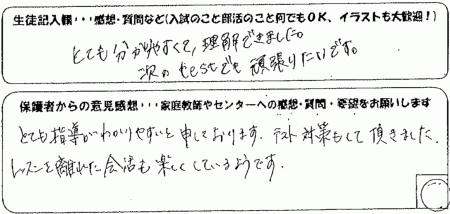 生徒記入欄・・・感想・質問など(入試のこと部活のこと何でもOK、イラストも大歓迎！)
とても分かりやすくて、理解できました。
次のtestでも頑張りたいです。
保護者からの意見感想・・・家庭教師やセンターへの感想・質問・要望をお願いします
とても指導がわかりやすいと申しております。テスト対策もして頂きました。
レッスンを離れた会話も楽しくしているようです。